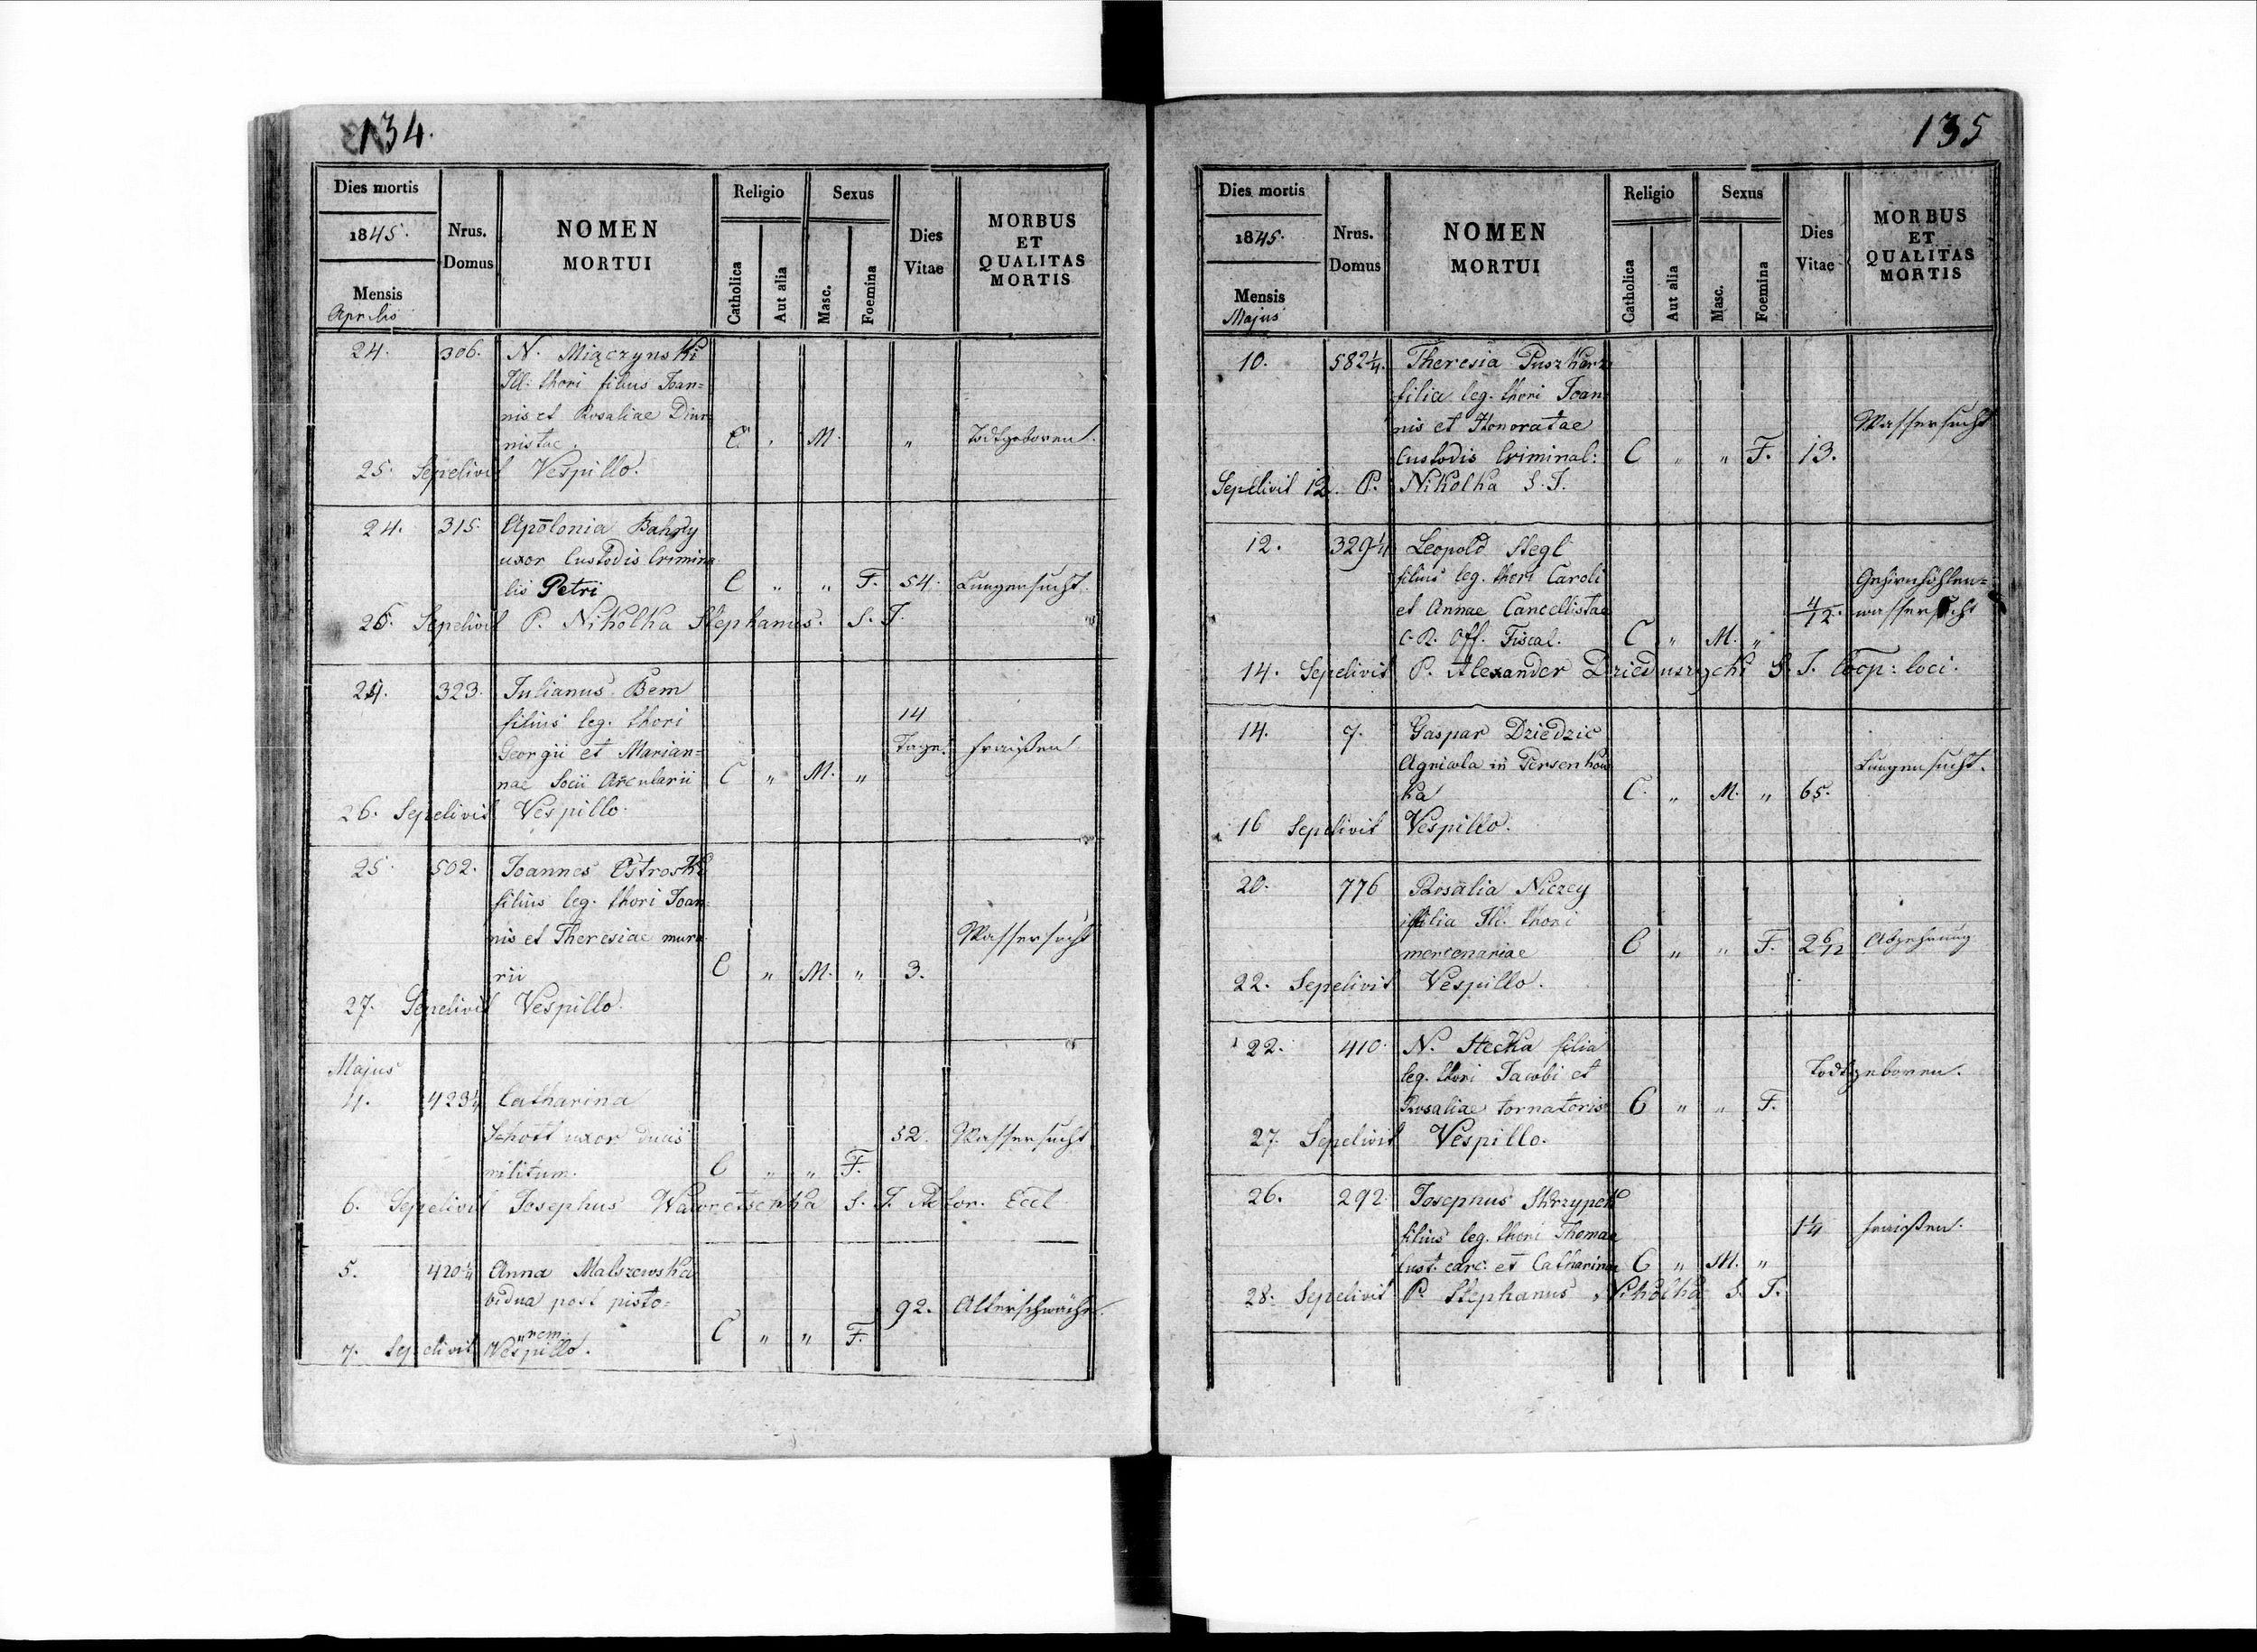 134.
Dies mortis
1845.
Mensis
Aprilis
Nrus.
Domus
NOMEN
MORTUI
Religio
Catholica
Aut alia
Sexus
Masc.
Foemina
Dies
Vitae
MORBUS
ET
QUALITAS
MORTIS
24. 306. N. Miączynski
Ill. thori filius Joan=
nis et Rosaliae Diur
nistae. C " M. " Todtgeboren.
25. Sepelivit Vespillo.
24. 315. Apolonia Bahry
uxor Custodis Crimina
lis Petri C " " F. 54. Lungensucht.
26. Sepelivit P. Nikolka Stephanus. S. J.
24. 323. Julianus Bem
filius leg. thori 14
Georgii et Marian= Tage. Fraißen
nae Socii Arcularii C " M. "
26. Sepelivit Vespillo.
25. 502. Joannes Ostroski
filius leg. thori Joan
nis et Theresiae mura Wassersucht
rii C " M. " 3.
27. Sepelivit Vespillo.
Majus
4. 423¼ Catharina
Schott uxor ducis 52. Wassersucht
militum. C " " F.
6. Sepelivit Josephus Wawretschka S. J. Eccl
5. 420¼ Anna Malszewska
vidua post pisto= 92. Alterschwäche.
"rem. C " " F.
7. Sepelivit Vespillo.
135
Dies mortis
1845.
Mensis
Majus
Nrus.
Domus
NOMEN
MORTUI
Religio
Catholica
Aut alia
Sexus
Masc.
Foemina
Dies
Vitae
MORBUS
ET
QUALITAS
MORTIS
10. 582¼. Theresia Puszkarz
filia leg. thori Joan
nis et Honoratae Wassersucht
Custodis Criminal: C " " F. 13.
Sepelivit 12. P. Nikolka S. J.
12. 329¼ Leopold Stegl
filius leg. thori Caroli Gehirnhöhlen=
et Annae Cancellistae 4/12. wassersucht
C. R. Off. Fiscal. C " M. "
14. Sepelivit P. Alexander Dzieduszycki S. J. Coop: loci.
14. 7. Gaspar Dziedzic
Agricola in Persenkow Lungensucht.
ka C. " M. " 65.
16 Sepelivit Vespillo.
20. 776 Rosalia Niczey
filia Ill. thori
mercenariae C " " F. 2 6/12 Abzehrung
22. Sepelivit Vespillo.
22. 410. N. Stecka filia
leg. thori Jacobi et Todtgeboren.
Rosaliae tornatoris C " " F.
27. Sepelivit Vespillo.
26. 292. Josephus Skrzypek
filius leg. thori Thomae 1¼ Fraißen.
Cust. carc. et Catharinae C " M. "
28. Sepelivit P. Stephanus Nikolka S. J.